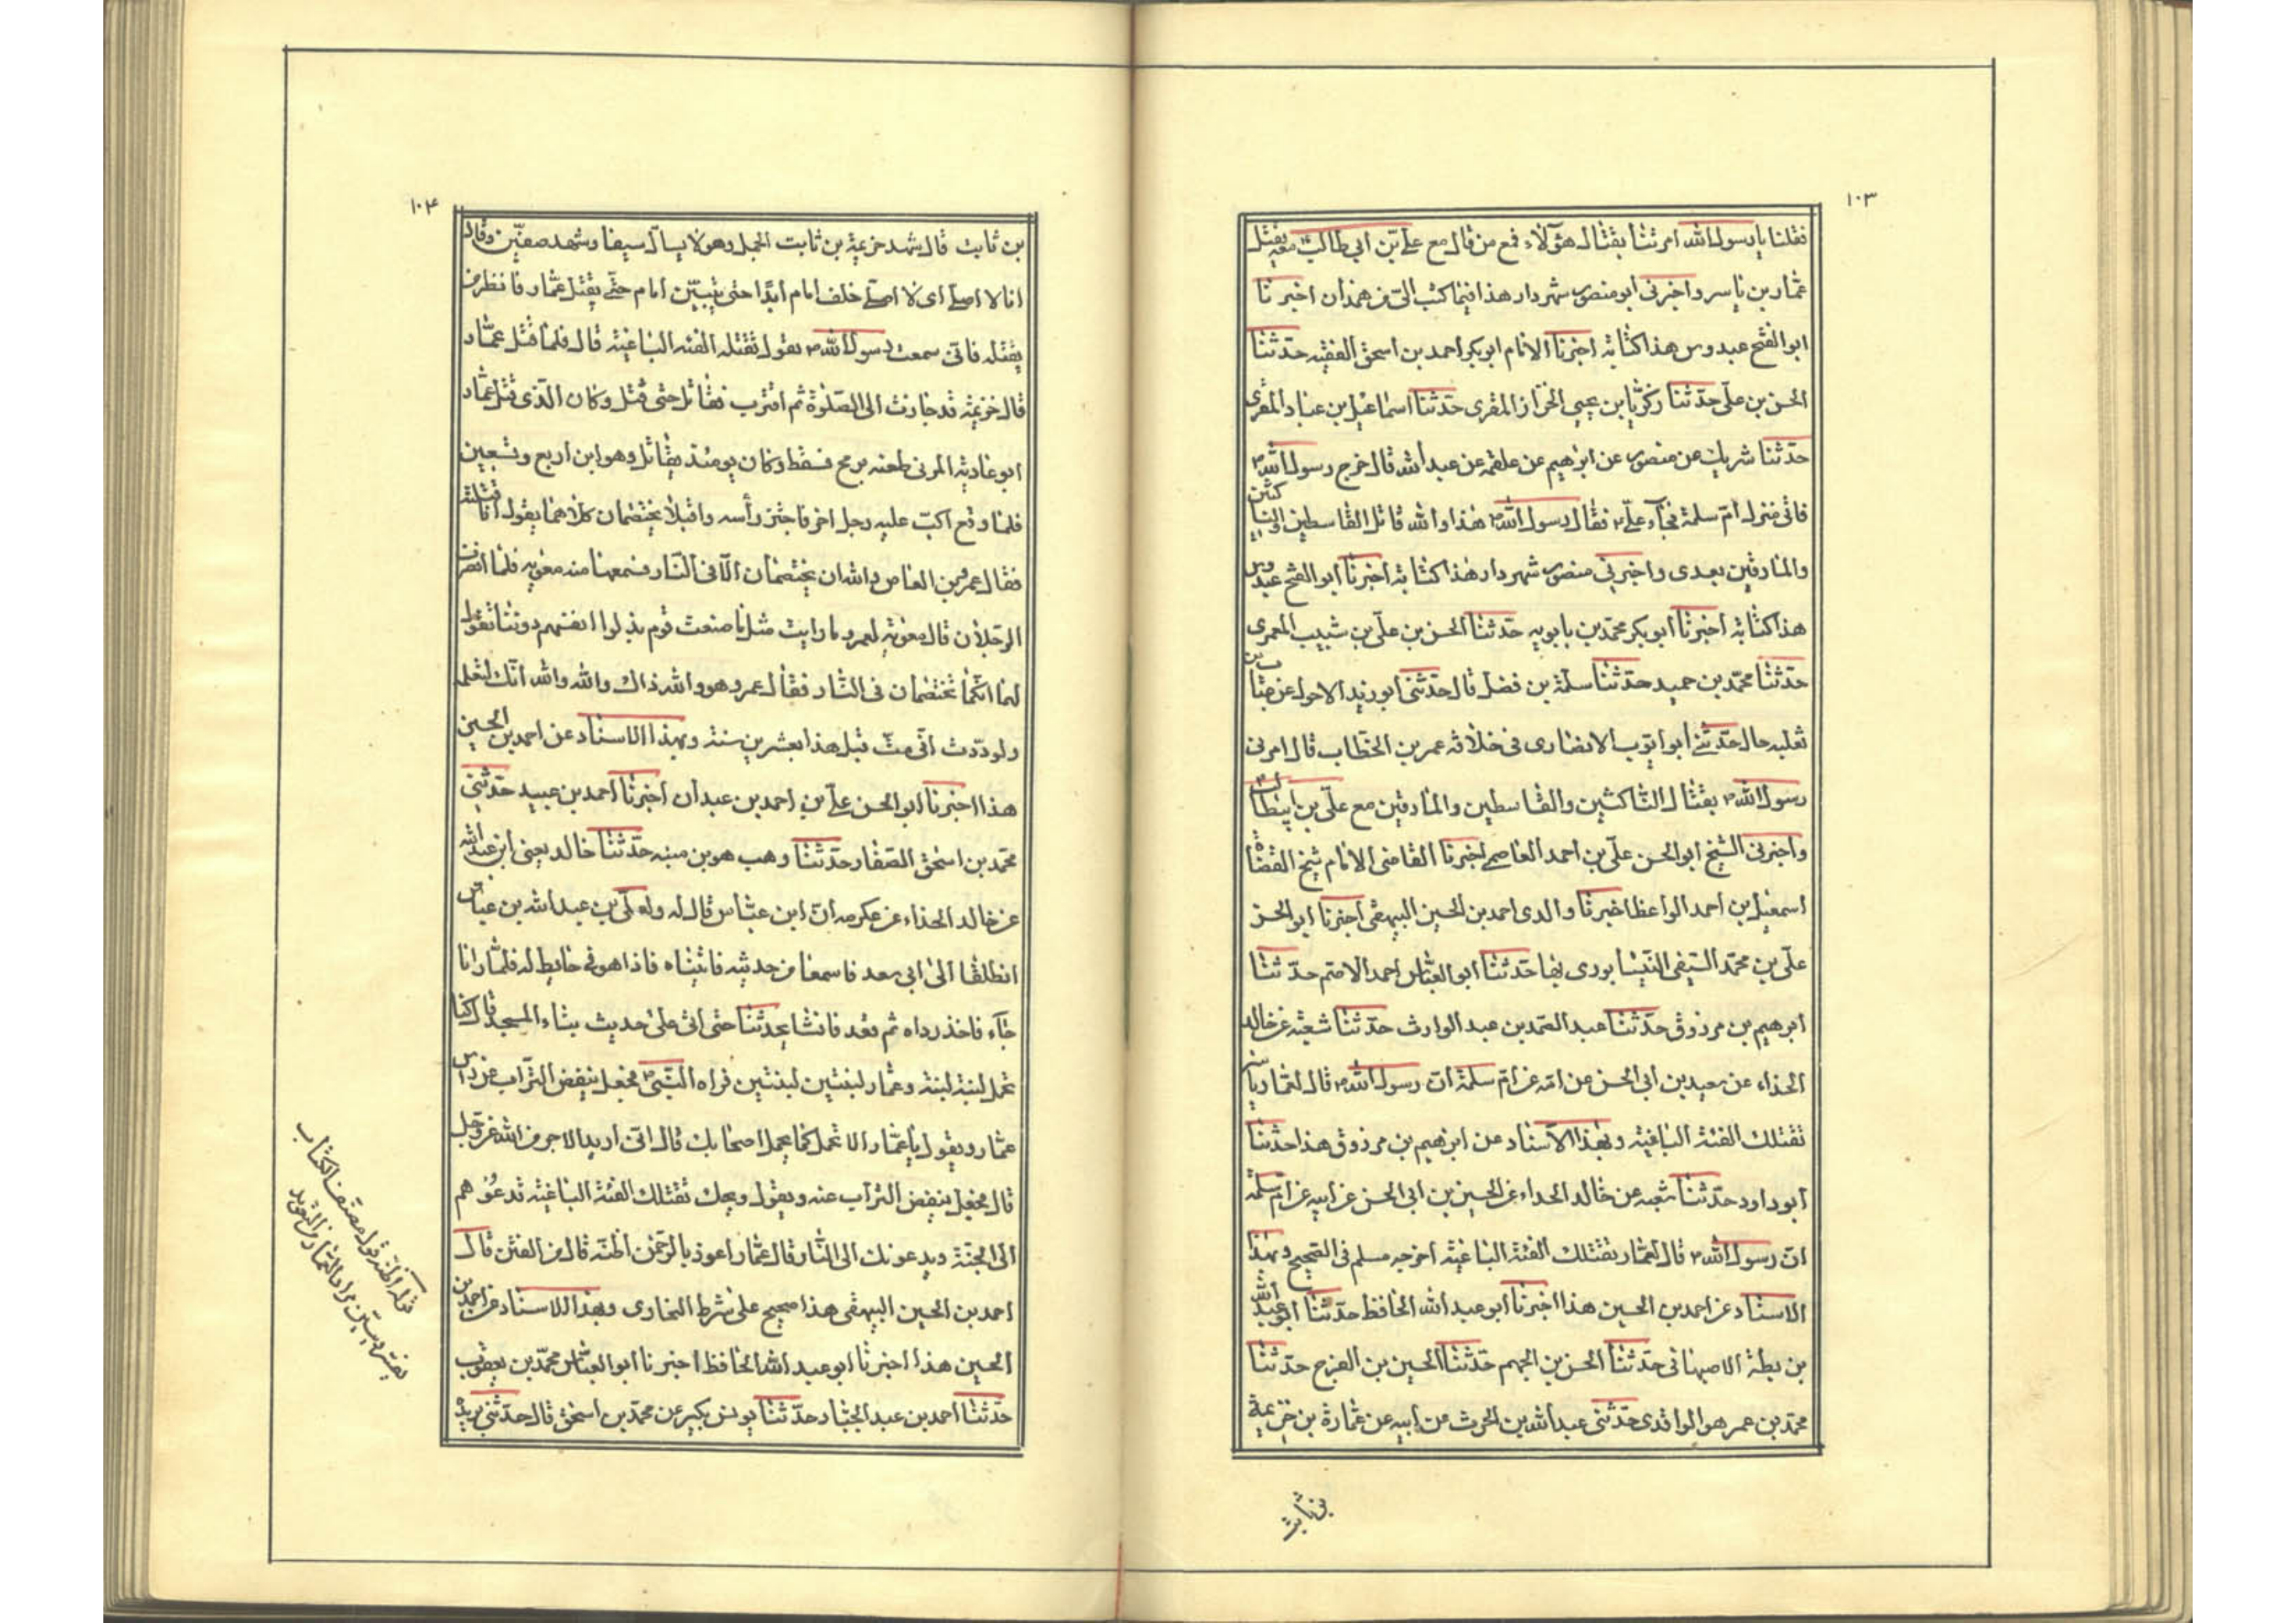 ١٠٣
فقلنا يا رسول الله امرتنا بقتال هؤلآء فمع من قال مع علي بن ابي طالب معه يقتل
عمار بن ياسر واخبرنى ابو منصور شهردار هذا فيما كتب الىّ من همدان اخبرنا
ابو الفتح عبدوس هذا كتابة اخبرنا الامام ابو بكر احمد بن اسحق الفقيه حدثنا
الحسن بن علي حدثنا زكريا بن يحيى الخزاز المقرى حدثنا اسماعيل بن عباد المقرى
حدثنا شريك عن منصور عن ابرهيم عن علقمه عن عبد الله قال خرج رسول الله ص
فاتى منزل ام سلمة فجآء علىّ ع فقال رسول الله ص هذا والله قاتل القاسطين والناكثين
والمارقين بعدى واخبرنى منصور شهردار هذا كتابة اخبرنا ابو الفتح عبدوس
هذا كتابة اخبرنا ابو بكر محمد بن بابويه حدثنا الحسن بن علي بن شبيب المعمرى
حدثنا محمد بن حميد حدثنا سلمة بن فضل قال حدثنى ابو زيد الاحول عن عتاب بن
ثعلبه قال حدثنى ابو ايوب الانصارى فى خلافة عمر بن الخطاب قال امرنى
رسول الله ص بقتال الناكثين والقاسطين والمارقين مع علي بن ابيطالب
واخبرنى الشيخ ابو الحسن علي بن احمد العاصمى اخبرنا القاضى الامام شيخ القضاة
اسمعيل بن احمد الواعظ اخبرنا والدى احمد بن الحسين البيهقى اخبرنا ابو الحسن
علي بن محمد السيفى النيسابورى بها حدثنا ابو العباس احمد الاصم حدثنا
ابرهيم بن مرزوق حدثنا عبد الصمد بن عبد الوارث حدثنا شعبة عن خالد
الحذاء عن سعيد بن ابى الحسن عن امه عن ام سلمة ان رسول الله ص قال لعمار ياسر
تقتلك الفئة الباغية وبهذا الاسناد عن ابرهيم بن مرزوق هذا حدثنا
ابو داود حدثنا شعبه عن خالد الحداء عن الحسين بن ابى الحسن عن ابيه عن ام سلمة
ان رسول الله ص قال لعمار تقتلك الفئة الباغية اخرجه مسلم فى الصحيح وبهذا
الاسناد عن احمد بن الحسين هذا اخبرنا ابو عبد الله الحافظ حدثنا ابو عبد الله
بن بطة الاصبهانى حدثنا الحسن بن الجهم حدثنا الحسين بن الفرج حدثنا
محمد بن عمر هو الواقدى حدثنى عبد الله بن الحرث عن ابيه عن عمارة بن خزيمة
بن ثابت
١٠٤
بن ثابت قال شهد خزيمة بن ثابت الجمل وهو لا يسل سيفا وشهد صفين وقال
انا لا اصلى اى لا اصلى خلف امام ابدًا حتى يتبين امام حتى يقتل عمار فانظر من
يقتله فانى سمعت رسول الله ص يقول تقتله الفئه الباغية قال فلما قتل عمار
قال خزيمة قد جازت الى الصلوة ثم اقترب فقاتل حتى قتل وكان الذى قتل عمار
ابو غادية المزنى طعنه برمح فسقط وكان يومئذ يقاتل وهو ابن اربع وتسعين
فلما وقع اكب عليه رجل اخر فاجتز رأسه واقبلا يختصمان كلاهما يقول انا قتلته
فقال عمرو بن العاص والله ان يختصمان الا فى النار فسمعها منه معويه فلما انصرف
الرجلان قال معوية لعمرو ما رايت مثل ما صنعت قوم بذلوا انفسهم دوننا تقول
لهما انكما تختصمان فى النار فقال عمرو هو والله ذاك والله والله انك لتعلمه
ولوددت انى مت قبل هذا بعشرين سنة وبهذا الاسناد عن احمد بن الحسين
هذا اخبرنا ابو الحسن علي بن احمد بن عبدان اخبرنا احمد بن عبيد حدثنى
محمد بن اسحق الصفار حدثنا وهب هو بن منبه حدثنا خالد يعنى ابن عبد الله
عن خالد الحذاء عن عكرمه ان ابن عباس قال له ولعلى بن عبد الله بن عباس
انطلقا الى ابى سعد فاسمعا من حديثه فاتيناه فاذا هو فى حايط له فلما رانا
جآء فاخذ رداه ثم قعد فانشا يحدثنا حتى اتى على حديث بناء المسجد قال كنا
نحمل لبنة لبنة وعمار لبنتين لبنتين فراه النبى ص فجعل ينفض التراب عن راس
عمار ويقول يا عمار الا تحمل كما يحمل اصحابك قال انى اريد الاجر من الله عز وجل
قال فجعل ينفض التراب عنه ويقول ويحك تقتلك الفئة الباغية تدعوهم
الى الجنة ويدعونك الى النار قال عمار اعوذ بالرحمن اظنه قال من الفتن قال
احمد بن الحسين البيهقى هذا صحيح على شرط البخارى وبهذا الاسناد عن احمد بن
الحسين هذا اخبرنا ابو عبد الله الحافظ اخبرنا ابو العباس محمد بن يعقوب
حدثنا احمد بن عبد الجبار حدثنا يونس بكير عن محمد بن اسحق قال حدثنى بريدة
قوله اظنه قول مصنف الكتاب